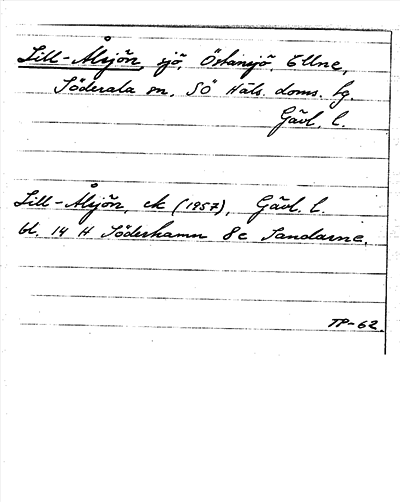 Lill-Ålsjön, sjö, Östansjö, Ellne,
Söderala sn, SÖ Häls. doms. hg.
Gävl. l.
Lill-Ålsjön, ek (1957), Gävl. l.
bl. 14 H Söderhamn 8c Sandarne.
TP-62